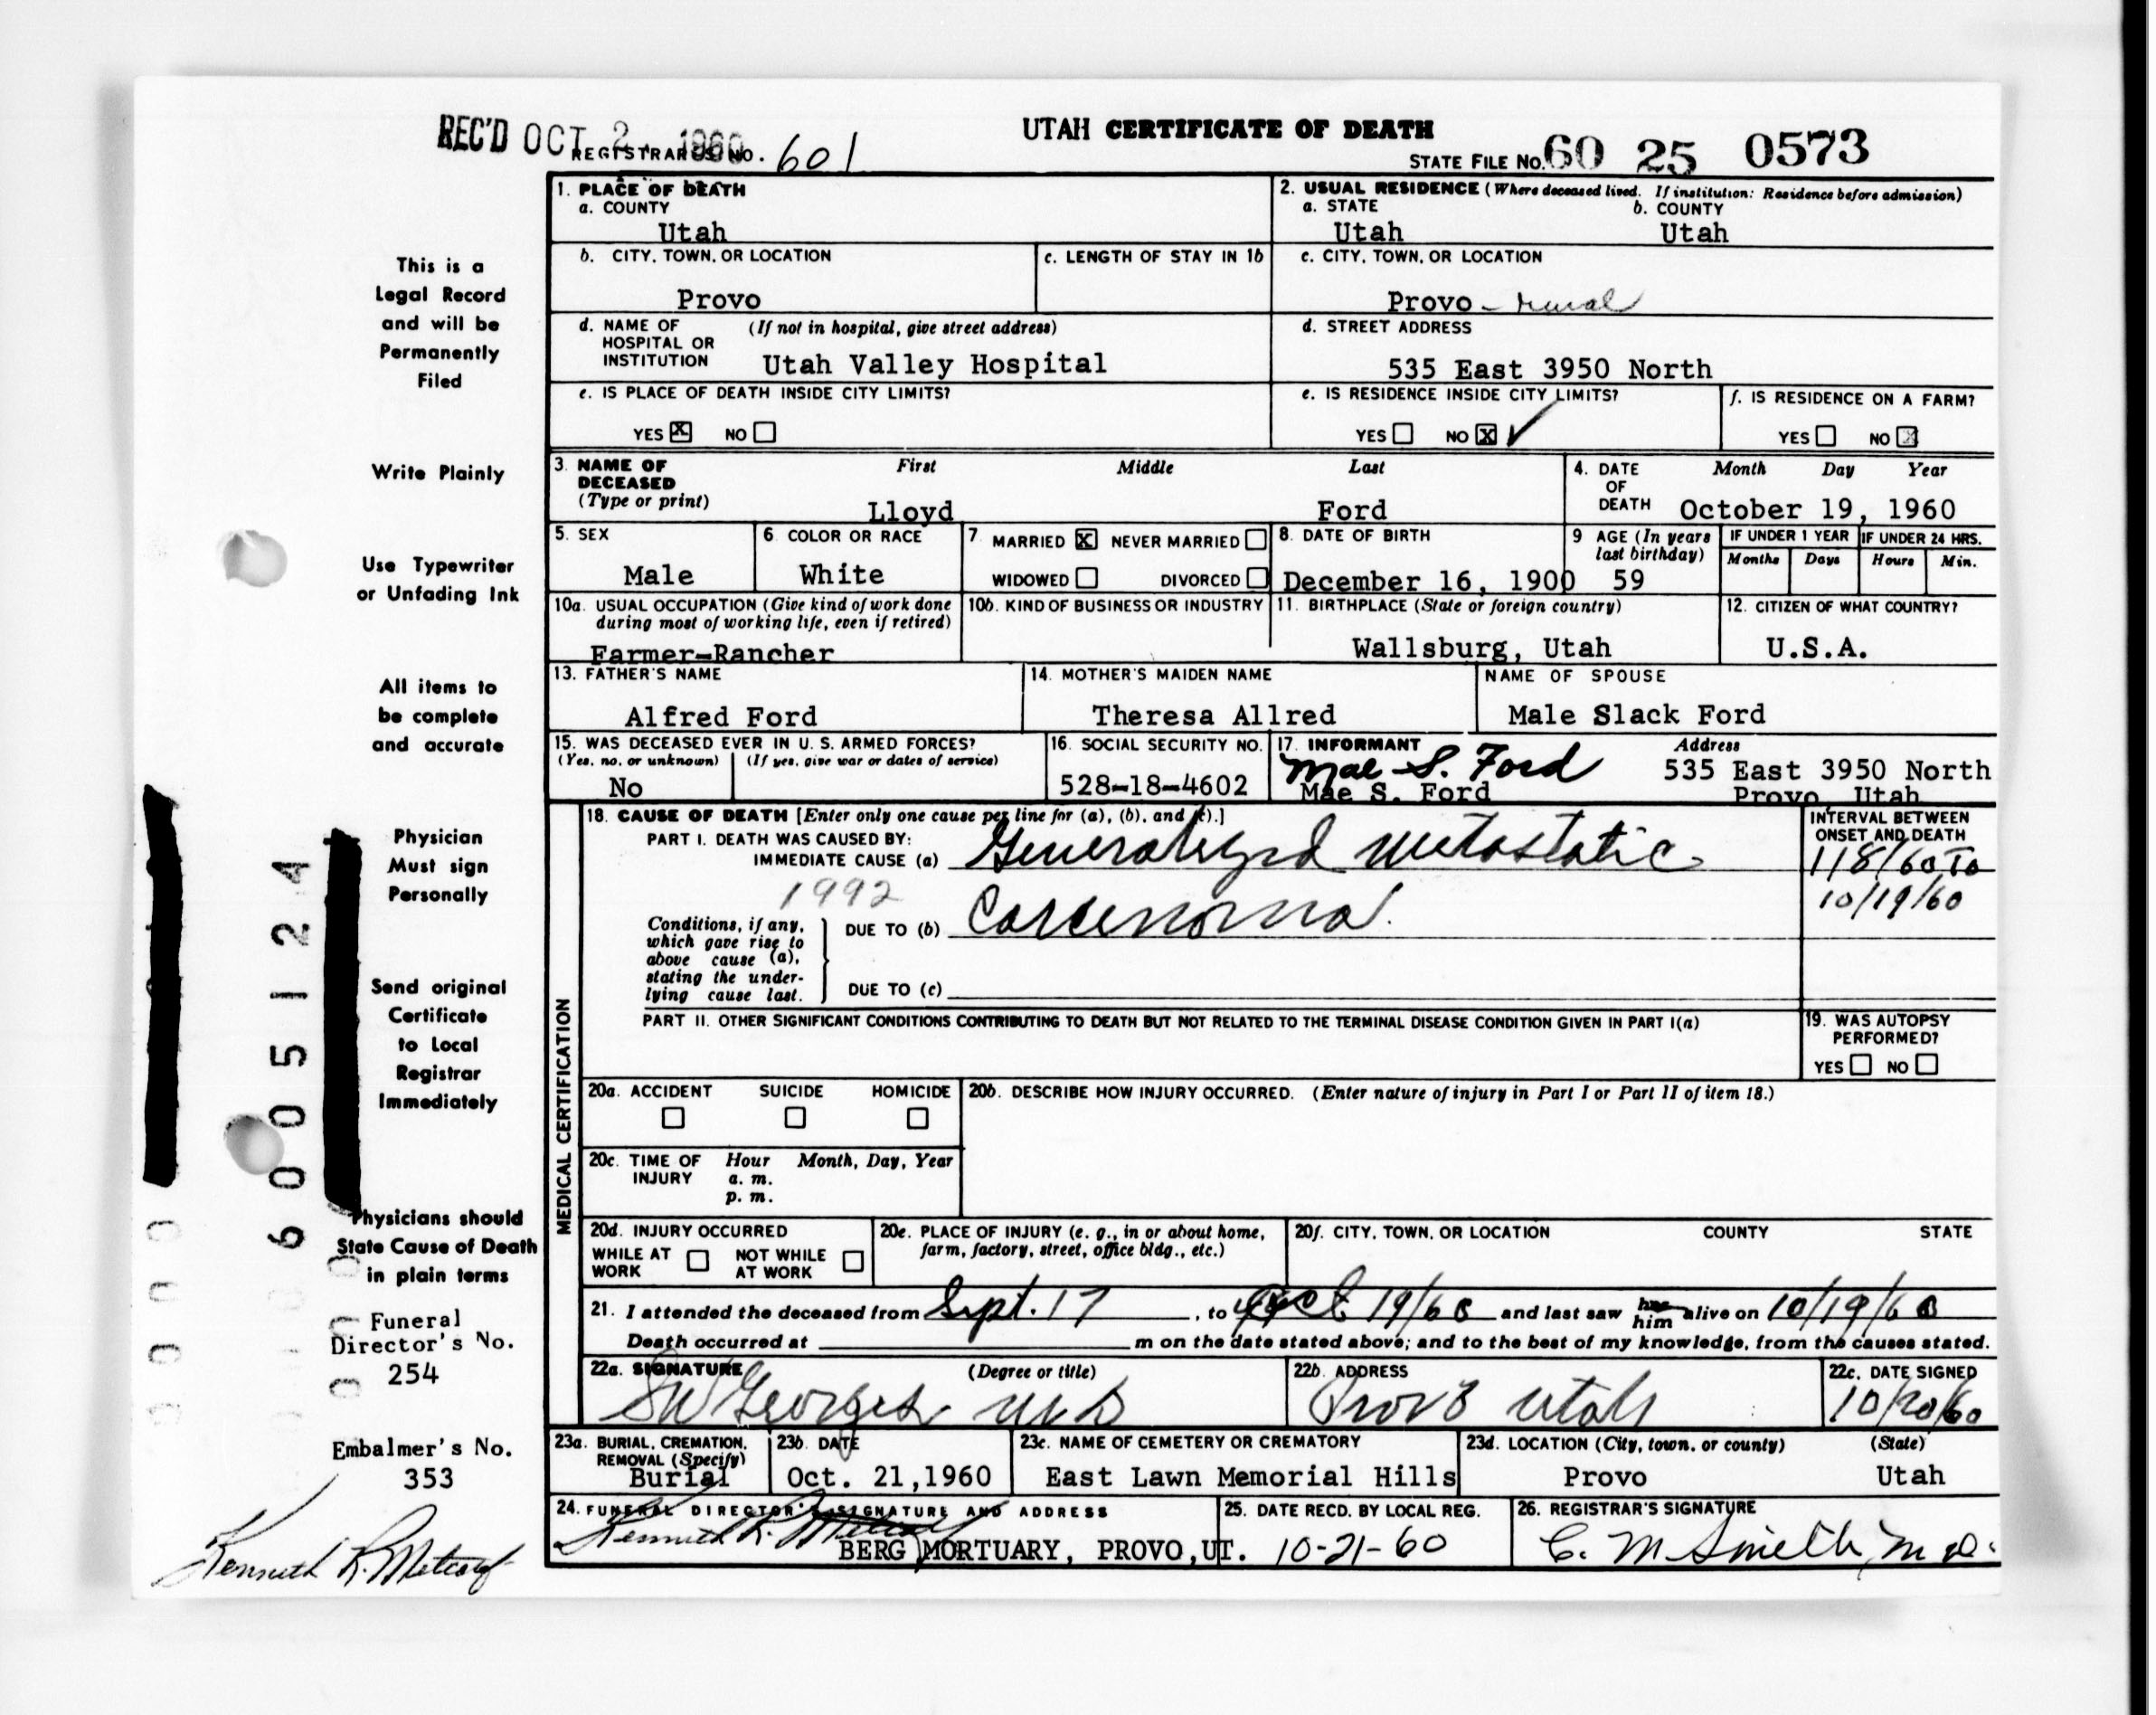 REC'D OCT 2 1960
REGISTRAR'S NO. 601
UTAH CERTIFICATE OF DEATH
STATE FILE NO. 60 25 0573
This is a
Legal Record
and will be
Permanently
Filed
Write Plainly
Use Typewriter
or Unfading Ink
All items to
be complete
and accurate
Physician
Must sign
Personally
Send original
Certificate
to Local
Registrar
Immediately
Physicians should
State Cause of Death
in plain terms
Funeral
Director's No.
254
Embalmer's No.
353
Kenneth R. Metcalf
6005124
1. PLACE OF DEATH
a. COUNTY
Utah
2. USUAL RESIDENCE (Where deceased lived. If institution: Residence before admission)
a. STATE b. COUNTY
Utah Utah
b. CITY, TOWN, OR LOCATION
Provo
c. LENGTH OF STAY IN 1b
c. CITY, TOWN, OR LOCATION
Provo - rural
d. NAME OF (If not in hospital, give street address)
HOSPITAL OR
INSTITUTION Utah Valley Hospital
d. STREET ADDRESS
535 East 3950 North
e. IS PLACE OF DEATH INSIDE CITY LIMITS?
YES X NO
e. IS RESIDENCE INSIDE CITY LIMITS?
YES NO X ✓
f. IS RESIDENCE ON A FARM?
YES NO X
3. NAME OF First Middle Last
DECEASED
(Type or print) Lloyd Ford
4. DATE Month Day Year
OF
DEATH October 19, 1960
5. SEX
Male
6. COLOR OR RACE
White
7. MARRIED X NEVER MARRIED
WIDOWED DIVORCED
8. DATE OF BIRTH
December 16, 1900
9 AGE (In years
last birthday)
59
IF UNDER 1 YEAR IF UNDER 24 HRS.
Months Days Hours Min.
10a. USUAL OCCUPATION (Give kind of work done
during most of working life, even if retired)
Farmer-Rancher
10b. KIND OF BUSINESS OR INDUSTRY
11. BIRTHPLACE (State or foreign country)
Wallsburg, Utah
12. CITIZEN OF WHAT COUNTRY?
U.S.A.
13. FATHER'S NAME
Alfred Ford
14. MOTHER'S MAIDEN NAME
Theresa Allred
NAME OF SPOUSE
Male Slack Ford
15. WAS DECEASED EVER IN U. S. ARMED FORCES?
(Yes, no, or unknown) (If yes, give war or dates of service)
No
16. SOCIAL SECURITY NO.
528-18-4602
17. INFORMANT Address
Mae S. Ford 535 East 3950 North
Mae S. Ford Provo Utah
MEDICAL CERTIFICATION
18. CAUSE OF DEATH [Enter only one cause per line for (a), (b), and (c).]
PART I. DEATH WAS CAUSED BY:
IMMEDIATE CAUSE (a) Generalized metastatic
1992
Conditions, if any,
which gave rise to
above cause (a),
stating the under-
lying cause last.
DUE TO (b) Carcenoma.
DUE TO (c)
INTERVAL BETWEEN
ONSET AND DEATH
1/8/60 To
10/19/60
PART II. OTHER SIGNIFICANT CONDITIONS CONTRIBUTING TO DEATH BUT NOT RELATED TO THE TERMINAL DISEASE CONDITION GIVEN IN PART I(a)
19. WAS AUTOPSY
PERFORMED?
YES NO
20a. ACCIDENT SUICIDE HOMICIDE
20b. DESCRIBE HOW INJURY OCCURRED. (Enter nature of injury in Part I or Part II of item 18.)
20c. TIME OF Hour Month, Day, Year
INJURY a. m.
p. m.
20d. INJURY OCCURRED
WHILE AT WORK NOT WHILE AT WORK
20e. PLACE OF INJURY (e. g., in or about home,
farm, factory, street, office bldg., etc.)
20f. CITY, TOWN, OR LOCATION COUNTY STATE
21. I attended the deceased from Sept. 17, to Oct 19/60 and last saw her him alive on 10/19/60
Death occurred at m on the date stated above; and to the best of my knowledge, from the causes stated.
22a. SIGNATURE (Degree or title)
SW Georges MD
22b. ADDRESS
Provo Utah
22c. DATE SIGNED
10/20/60
23a. BURIAL, CREMATION,
REMOVAL (Specify)
Burial
23b. DATE
Oct. 21,1960
23c. NAME OF CEMETERY OR CREMATORY
East Lawn Memorial Hills
23d. LOCATION (City, town, or county) (State)
Provo Utah
24. FUNERAL DIRECTOR'S SIGNATURE AND ADDRESS
Kenneth R. Metcalf
BERG MORTUARY, PROVO,UT.
25. DATE RECD. BY LOCAL REG.
10-21-60
26. REGISTRAR'S SIGNATURE
C. M Smith, M D.